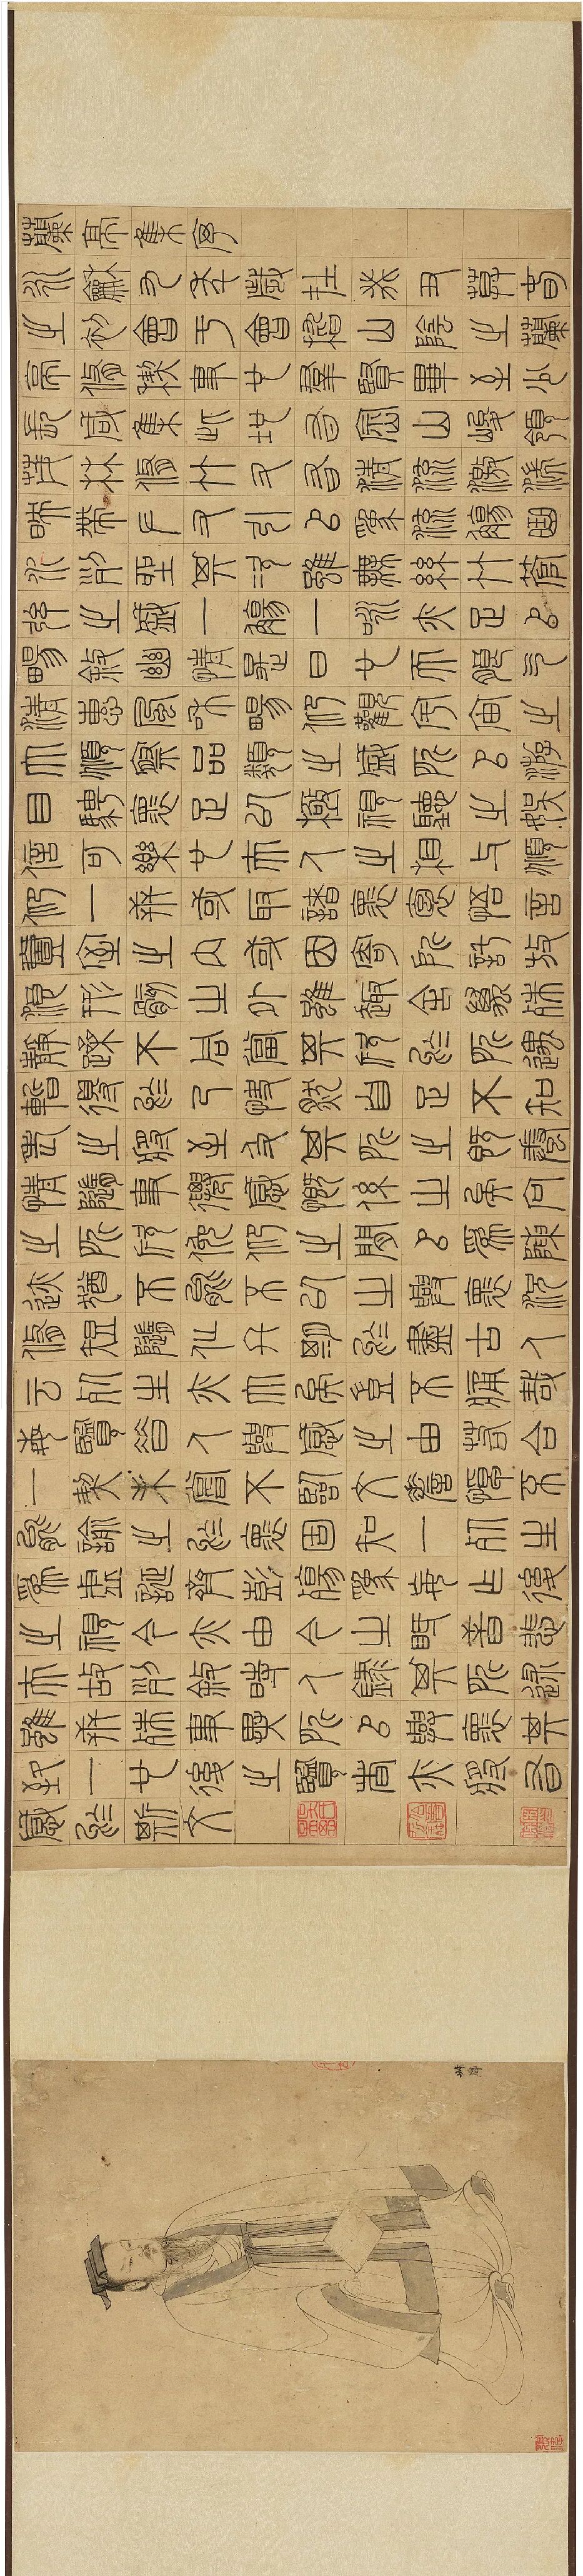 蘭亭集序
永和九年歲在癸丑暮春
之初會于會稽山陰之蘭
亭修禊事也群賢畢至少
長咸集此地有崇山峻領
茂林修竹又有清流激湍
映帶左右引以為流觴曲
水列坐其次雖無絲竹管
弦之盛一觴一詠亦足以
暢敘幽情是日也天朗氣
清惠風和暢仰觀宇宙之
大俯察品類之盛所以游
目騁懷足以極視聽之娛
信可樂也夫人之相與俯
仰一世或取諸懷抱悟言
壹室之內或因寄所託放
浪形骸之外雖趣舍萬殊
靜躁不同當其欣於所遇
暫得於己快然自足不知
老之將至及其所之既倦
情隨事遷感慨係之矣向
之所欣俛仰之間以為陳
跡猶不能不以之興懷況
修短隨化終期於盡古人
云死生亦大矣豈不痛哉
每攬昔人興感之由若合
一契未嘗不臨文嗟悼不
能喻之於懷固知一死生
為虛誕齊彭殤為妄作後
之視今亦由今之視昔悲
夫故列敘時人錄其所述
雖世殊事異所以興懷其
致一也後之攬者亦將有
感於斯文